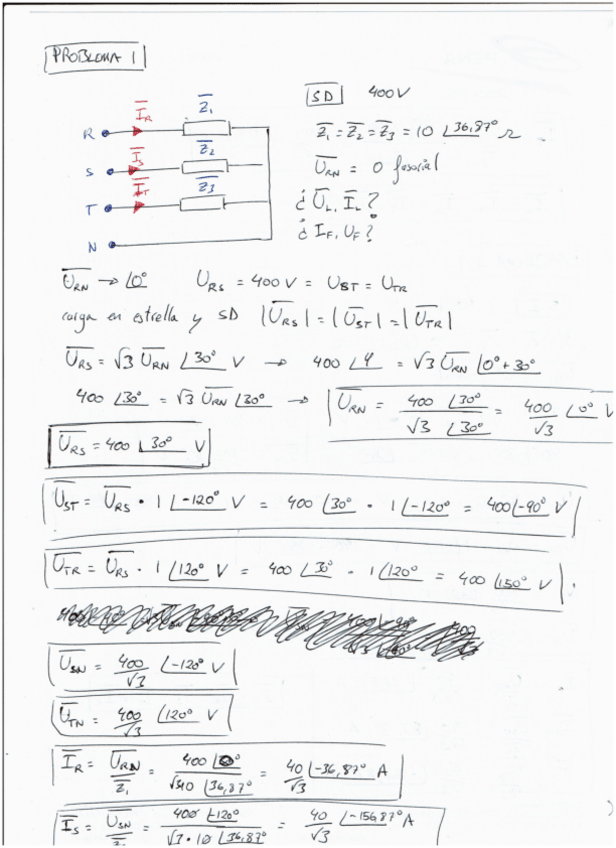 PROBLEMA 1
SD 400V
R I̅R Z̅1
S I̅S Z̅2
T I̅T Z̅3
N
Z̅1 = Z̅2 = Z̅3 = 10 ∠36,87° Ω
U̅RN = 0 fasorial
¿ U̅L, I̅L ?
¿ IF, UF ?
U̅RN → ∠0° URS = 400 V = UST = UTR
carga en estrella y SD |U̅RS| = |U̅ST| = |U̅TR|
U̅RS = √3 U̅RN ∠30° V → 400 ∠φ = √3 U̅RN ∠0°+30°
400 ∠30° = √3 U̅RN ∠30° → U̅RN = 400 ∠30° / √3 ∠30° = 400/√3 ∠0° V
U̅RS = 400 ∠30° V
U̅ST = U̅RS · 1 ∠-120° V = 400 ∠30° · 1 ∠-120° = 400 ∠-90° V
U̅TR = U̅RS · 1 ∠120° V = 400 ∠30° · 1 ∠120° = 400 ∠150° V.
U̅SN = 400/√3 ∠-120° V
U̅TN = 400/√3 ∠120° V
I̅R = U̅RN/Z̅1 = 400 ∠0° / √3 10 ∠36,87° = 40/√3 ∠-36,87° A
I̅S = U̅SN/Z̅2 = 400 ∠-120° / √3 · 10 ∠36,87° = 40/√3 ∠-156,87° A